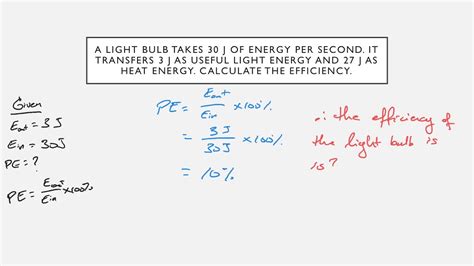 A LIGHT BULB TAKES 30 J OF ENERGY PER SECOND. IT
TRANSFERS 3 J AS USEFUL LIGHT ENERGY AND 27 J AS
HEAT ENERGY. CALCULATE THE EFFICIENCY.
Given
Eout = 3J
Ein = 30J
PE = ?
PE = Eout/Ein x100%
PE = Eout/Ein x100%
= 3J/30J x100%
= 10%
∴ the efficiency of
the light bulb is
is?